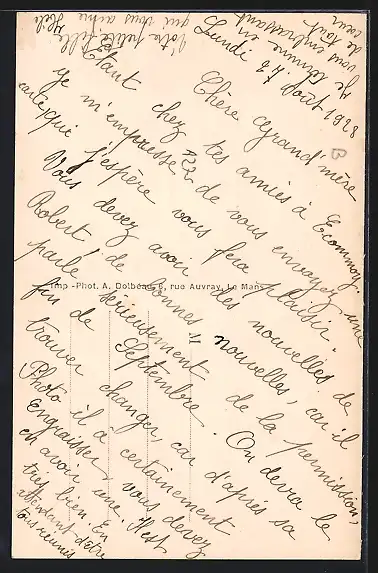 Lundi 12 Août 1928
Chère Grand'mère
Étant chez tes amies à Ecommoy
je m'empresse de vous envoyez une
carte, qui j'espère vous fera plaisir.
Vous devez avoir des nouvelles de
Robert de bonnes nouvelles, car il
parle sérieusement de la permission,
fin de Septembre. On devra le
trouver changer, car d'après sa
Photo il a certainement
Engraisser, vous devez
en avoir une. Il est
très bien. En
attendant d'être
tous réunis
Je termine en
vous embrassant
de tout
cœur
Votre petite fille
qui vous aime
Imp -Phot. A. Dolbeau, 6, rue Auvray, Le Mans
B